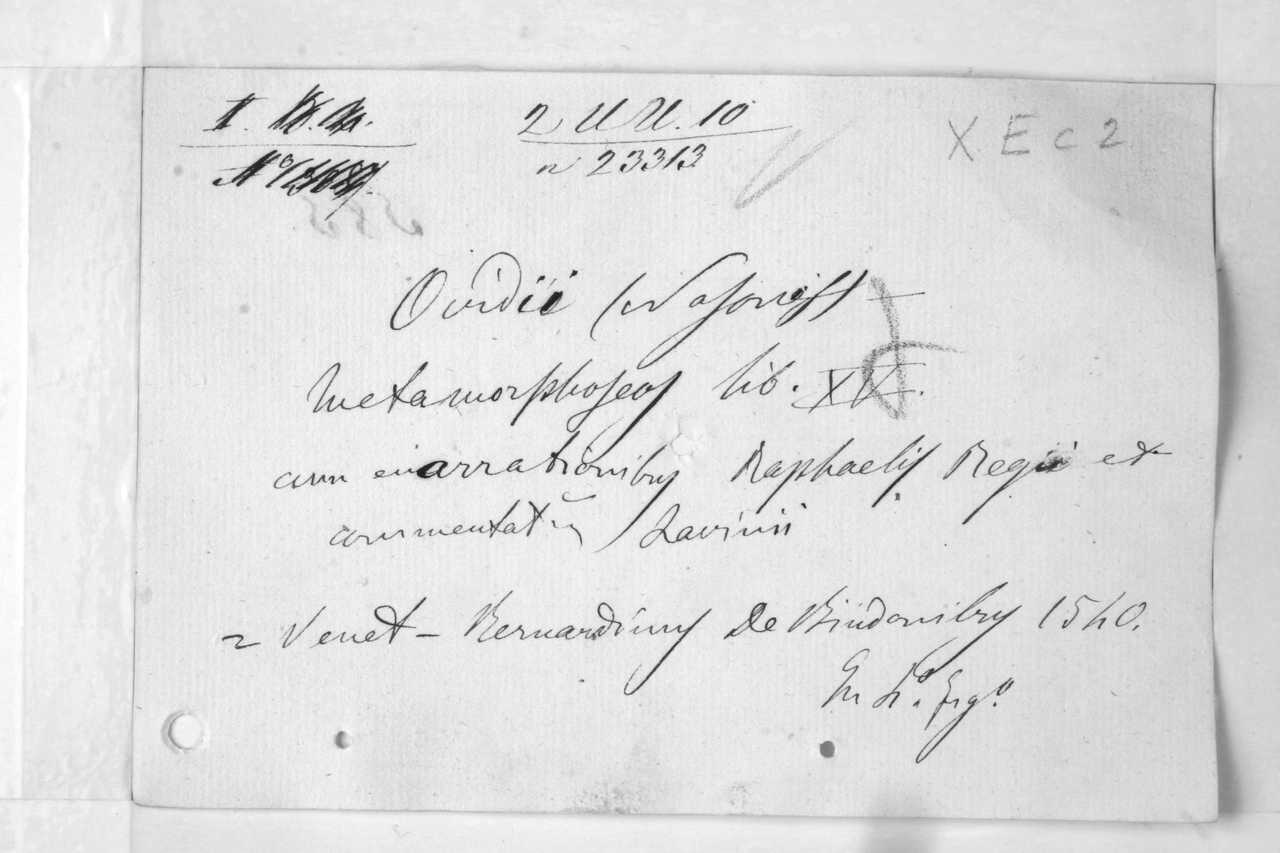 2 U U. 10
n 23313
X E c 2
Ovidii (Nasonis)
Metamorphoseos lib. XV.
cum enarrationibus Raphaelis Regii et
commentatū Lavinii
= Venet – Bernardinus de Bindonibus 1540.
in fº. figº.